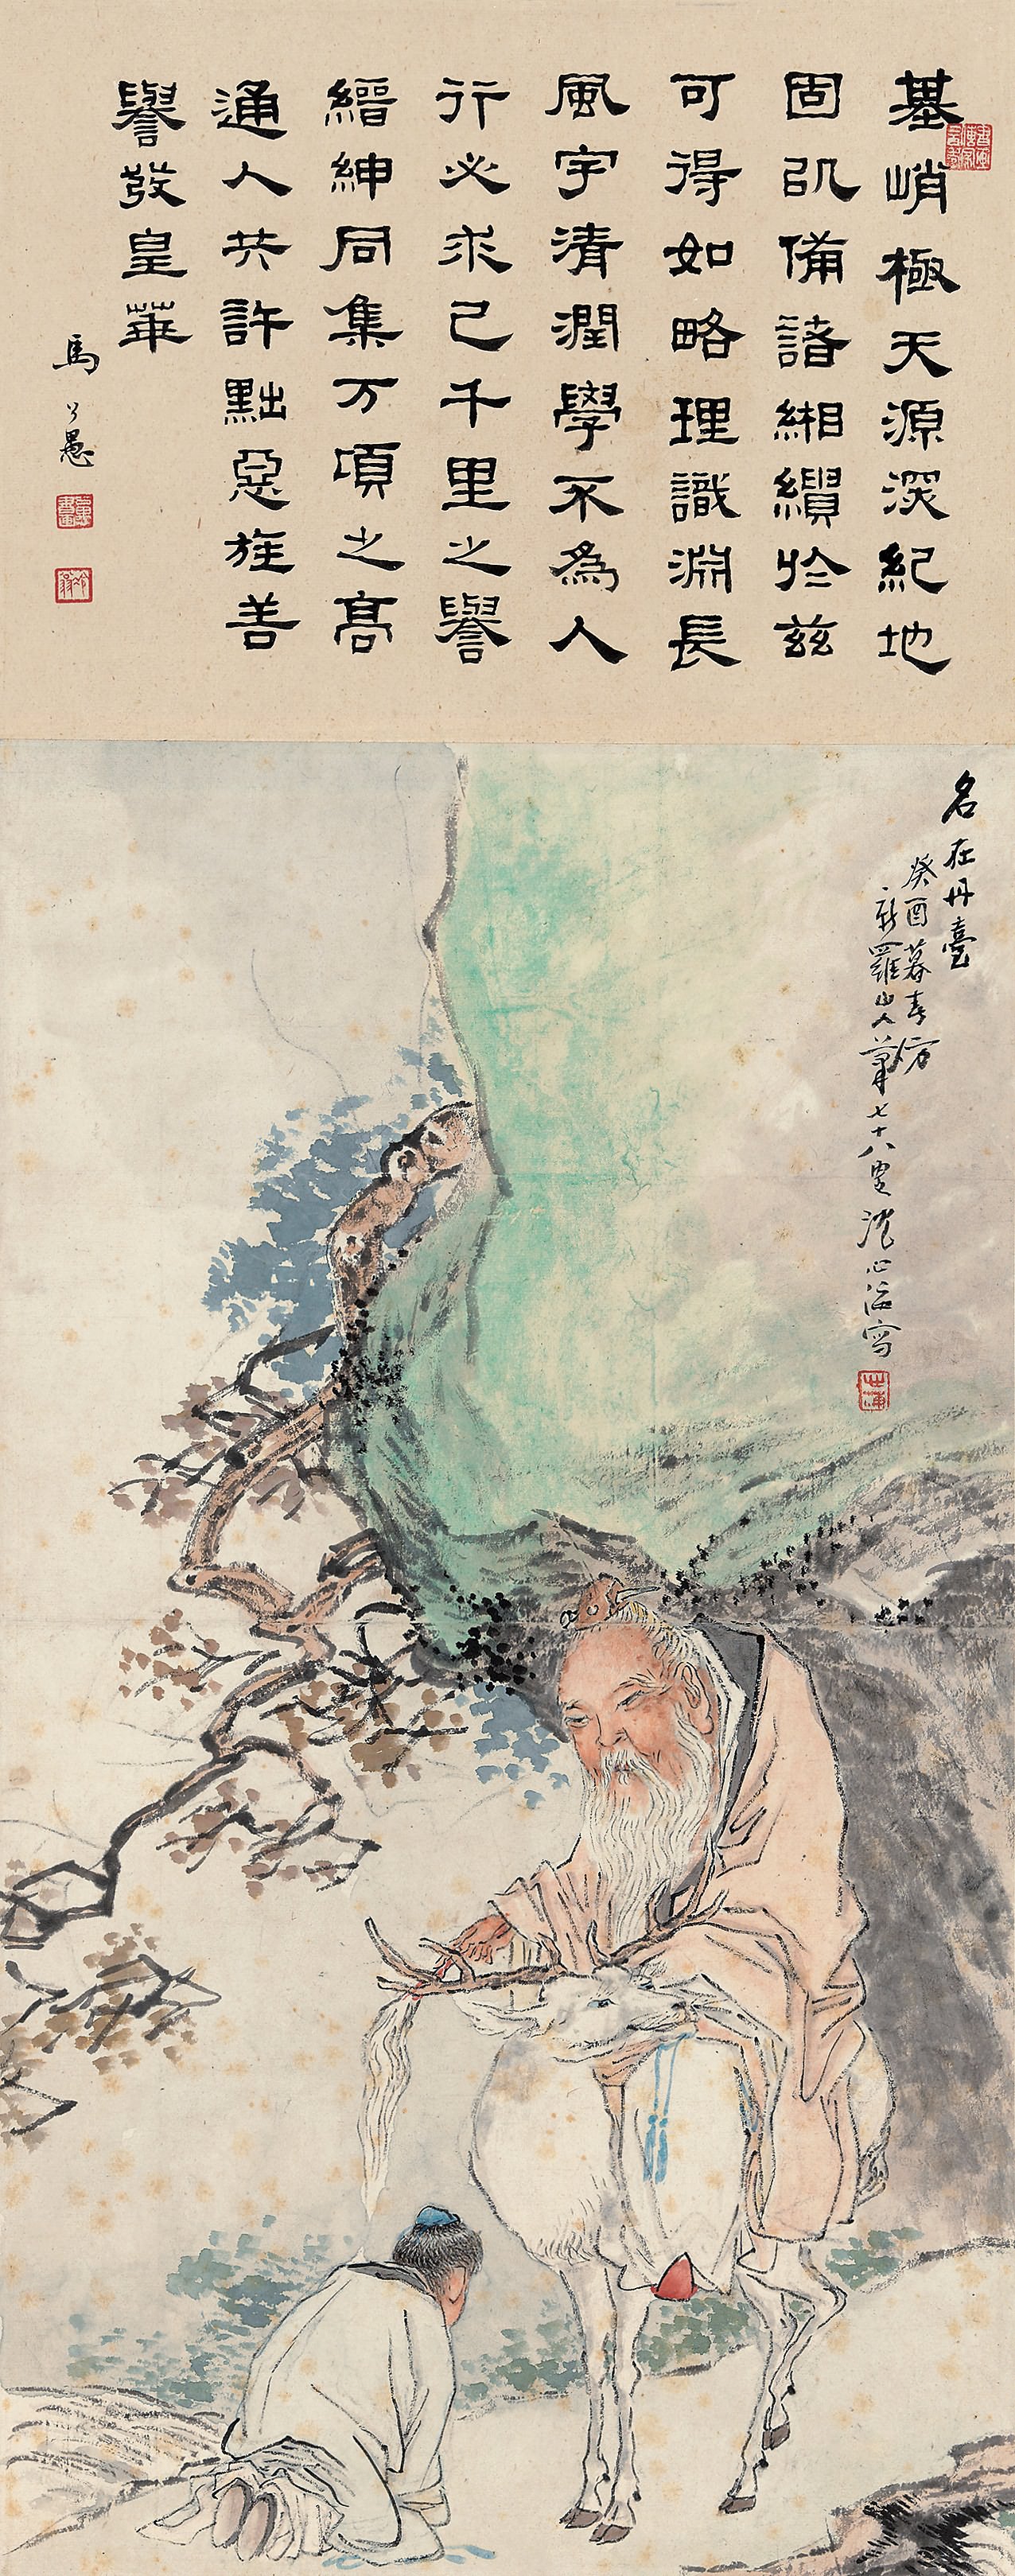 基峭極天源深紀地
固㕥備諸緗縹於兹
可得如略理識淵長
風宇清潤學不為人
行必求己千里之譽
縉紳同集万項之高
通人共許黜惡旌善
譽茂皇華
馬公愚
名在丹臺
癸酉暮春仿
新羅山人筆七十八叟沈心海寫